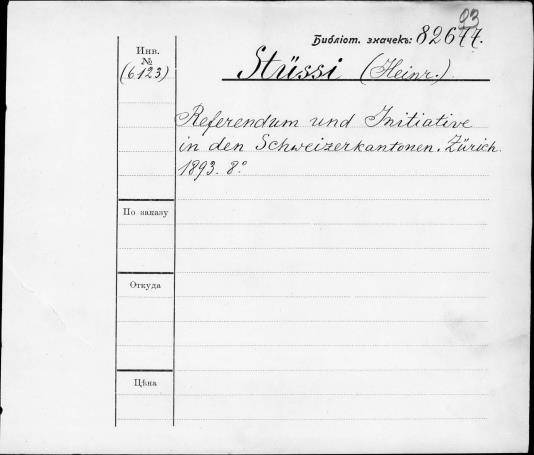 93
Библіот. значекъ: 82677.
Инв.
№
(6123)
Stüssi (Heinr.)
Referendum und Initiative
in den Schweizerkantonen. Zürich
1893. 8º
По заказу
Откуда
Цѣна